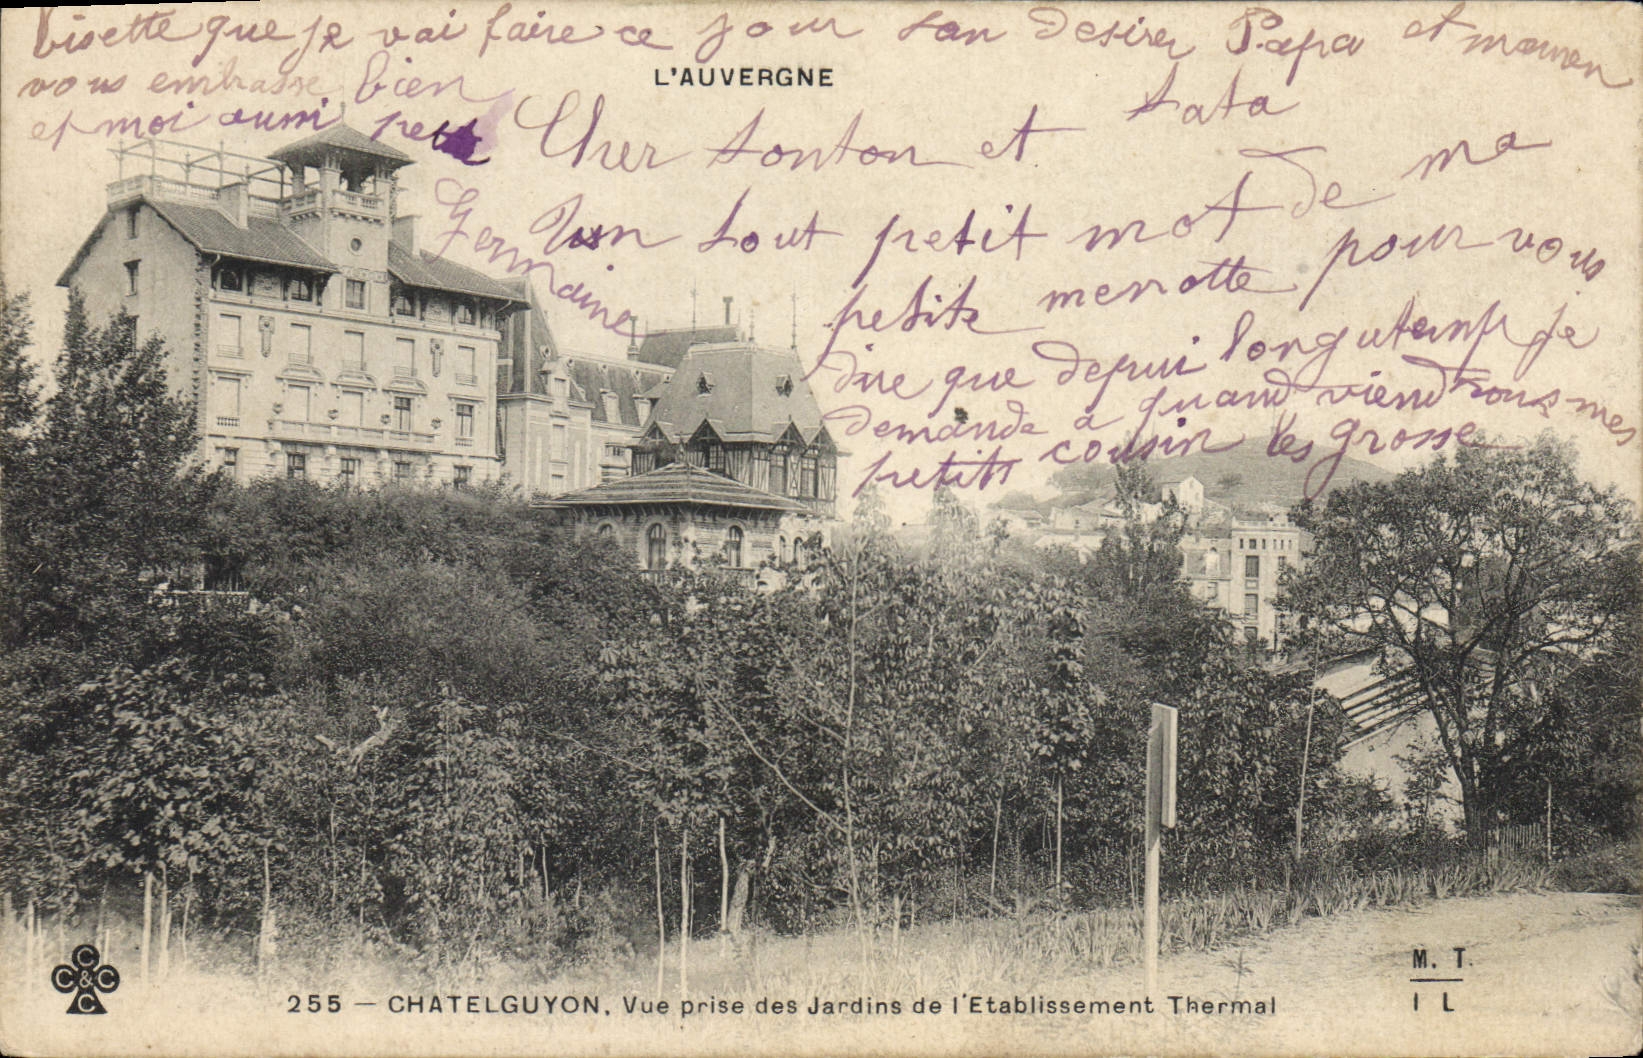 L'AUVERGNE
Cher tonton et tata
Un tout petit mot de ma
petite menotte pour vous
dire que depui longutemp je
demande a quand viendrous mes
petits cousin les grosse
bisette que je vai faire ce jour tan desirer Papa et maman
vous embrasse bien
et moi aussi petite
Germaine
C C & C C
255 — CHATELGUYON. Vue prise des Jardins de l'Etablissement Thermal
M. T.
I L